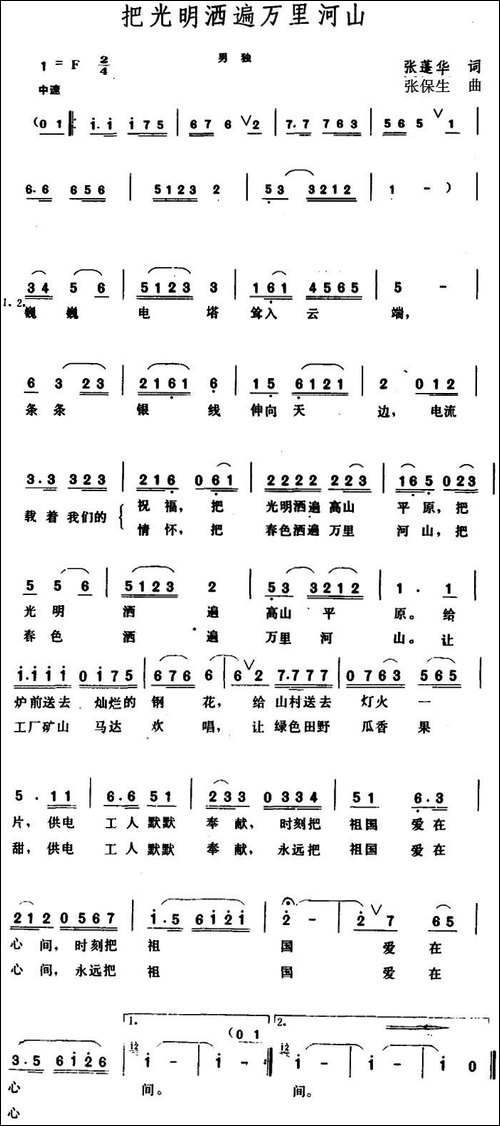 把光明洒遍万里河山
男独
1 = F 2/4
张蓬华 词
中速
张保生 曲
(0 1 i·i i175 676 2 7·7 763 565 1
6·6 656 5123 2 53 3212 1 - )
34 5 6 5123 3 161 4565 5 -
1. 2. 巍巍 电塔耸入云端,
6 3 23 2161 6 15 6123 2 012
条条 银线伸向天边, 电流
3·3 323 216 061 2222 223 165 023
载着我们的 祝福, 把 光明洒遍高山 平原, 把
情怀, 把 春色洒遍万里 河山, 把
5 5 6 5123 2 53 3212 1 · 1
光明 洒遍 高山平原。给
春色 洒遍 万里河山。让
i·iii 0i75 676 6 6 2 7·777 0763 565
炉前送去 灿烂的钢花, 给山村送去 灯火一
工厂矿山 马达欢唱, 让绿色田野 瓜香果
5 · 11 6·6 51 233 0334 51 6·3
片, 供电工人默默奉献, 时刻把祖国爱在
甜, 供电工人默默奉献, 永远把祖国爱在
212 0567 i·5 6i2i 2 - 2 7 65
心间, 时刻把祖国爱在
心间, 永远把祖国爱在
1. (0 1 2.
3·5 6i26 i - i - i - i - i 0
心间。 间。
心